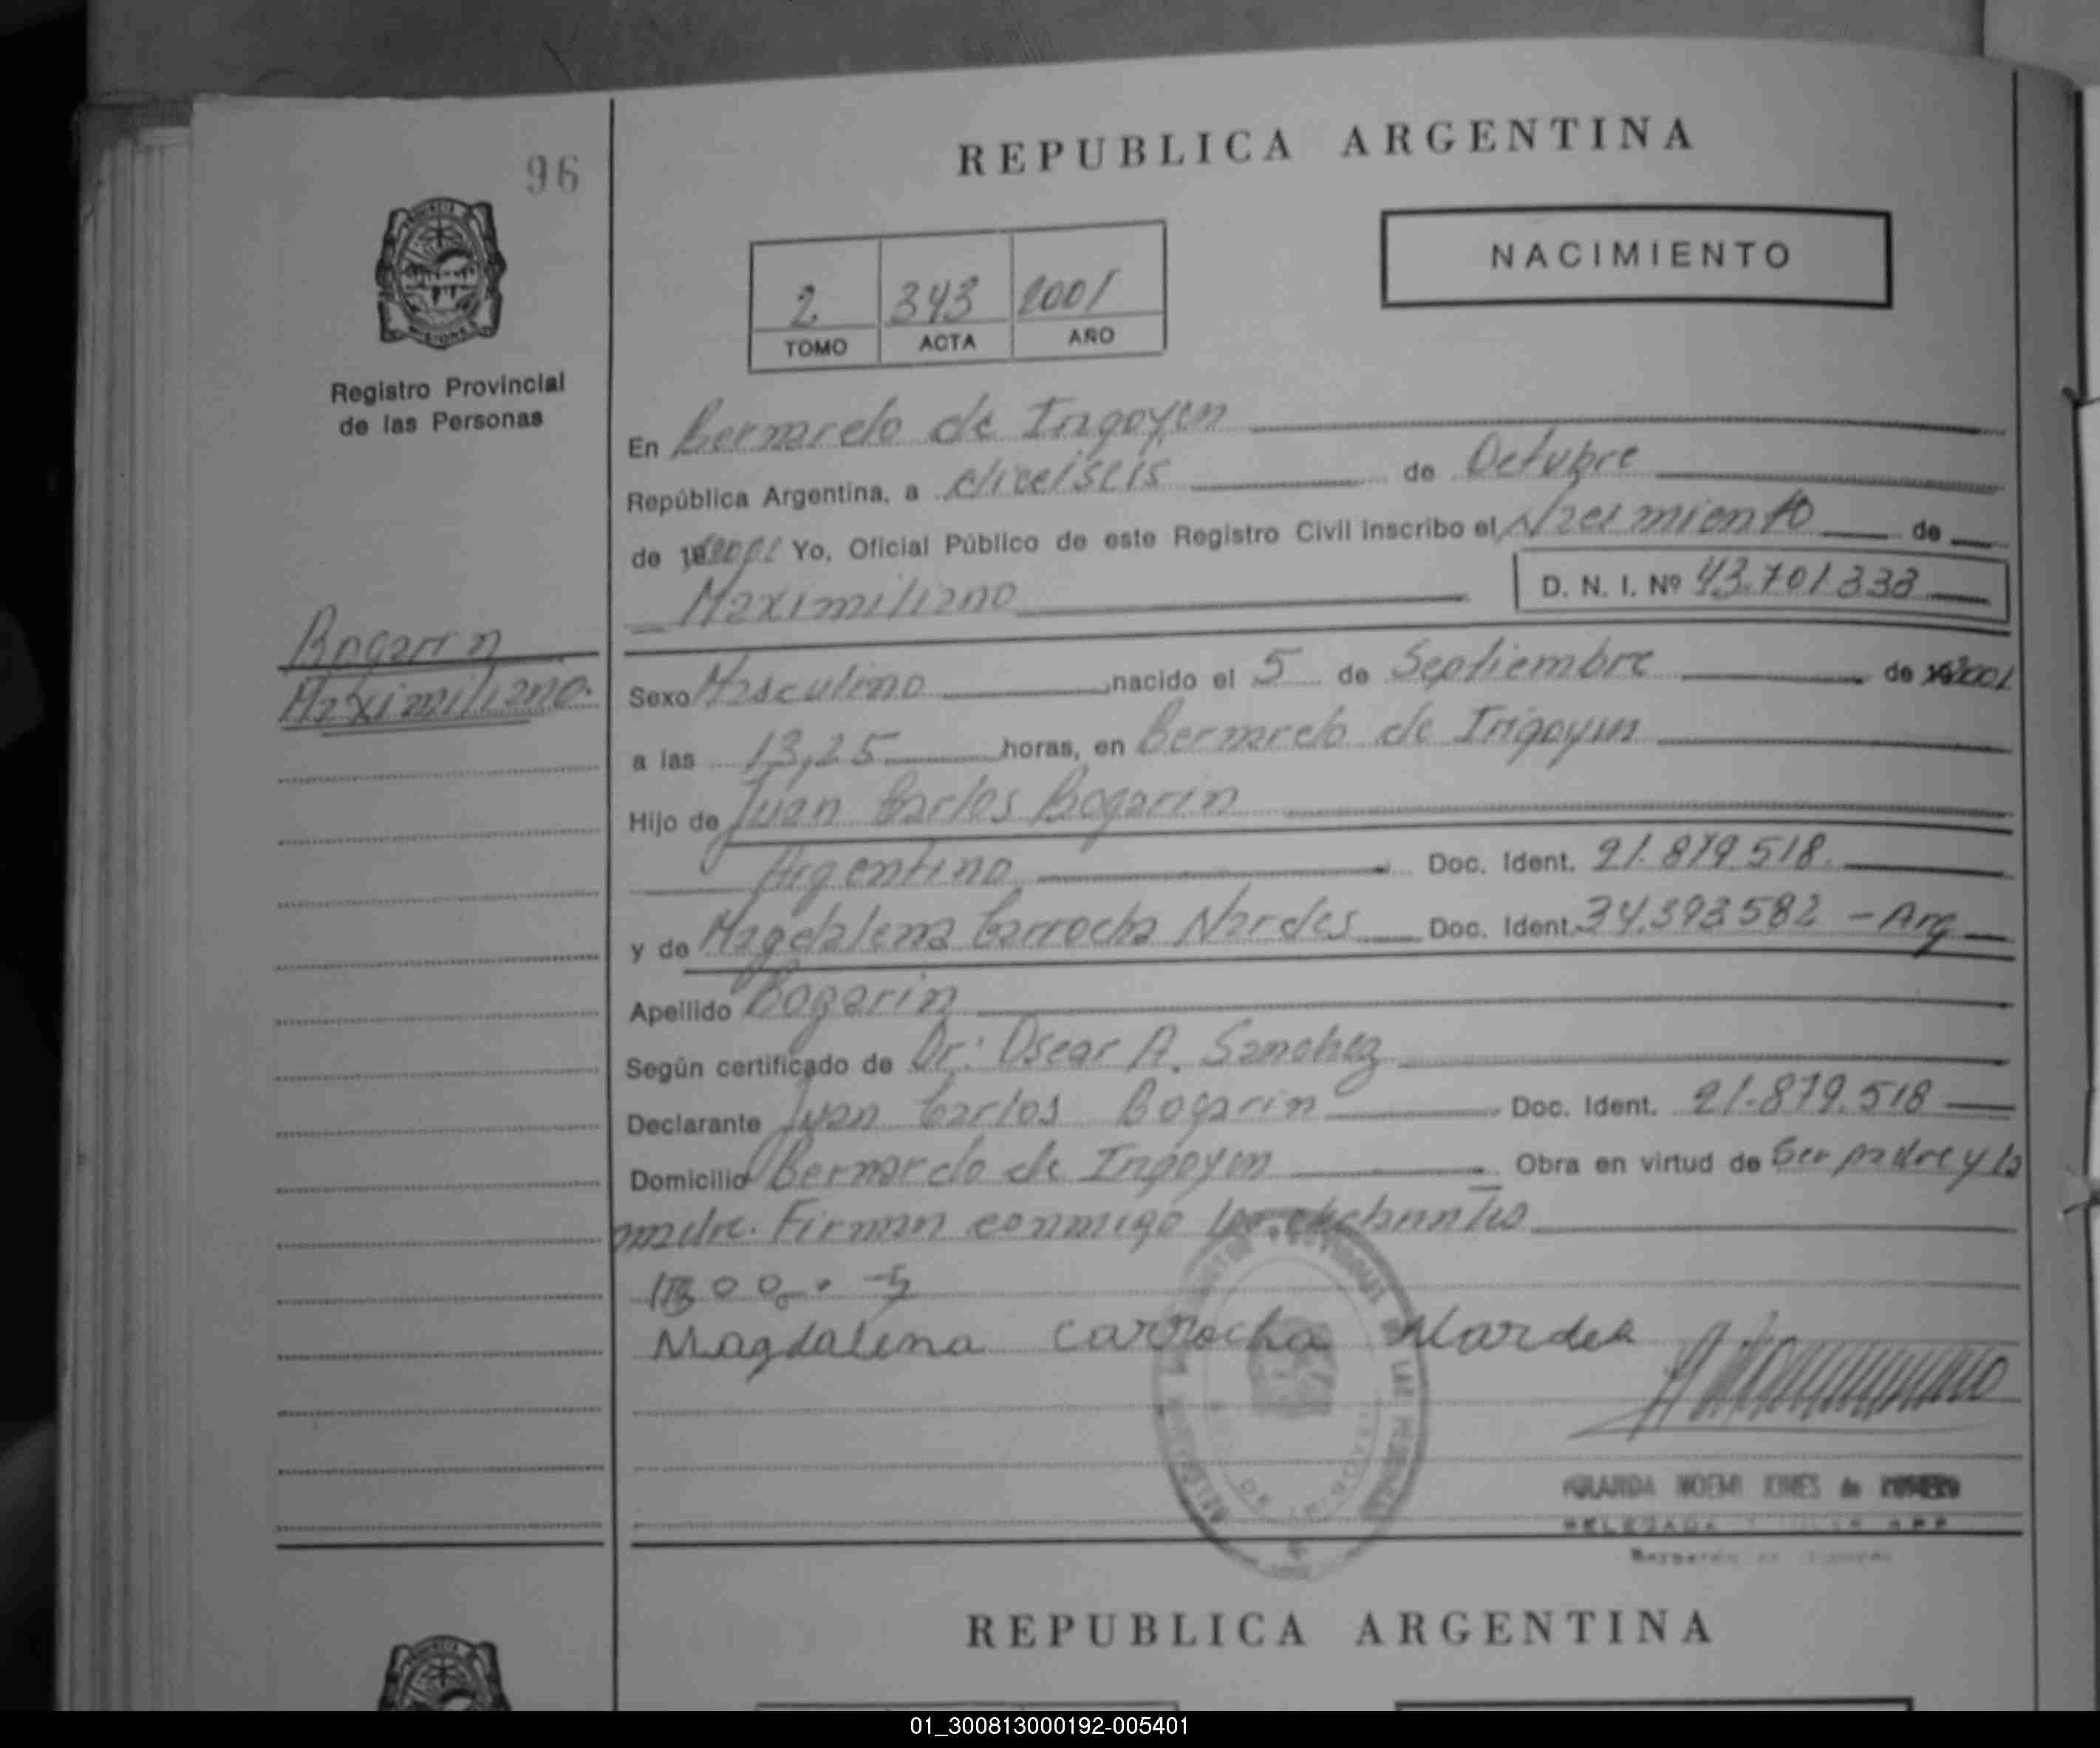 96
REPUBLICA ARGENTINA
NACIMIENTO
2 343 2001
TOMO ACTA AÑO
Registro Provincial
de las Personas
En Bernardo de Irigoyen
República Argentina, a dieciseis de Octubre
de 2001 Yo, Oficial Público de este Registro Civil inscribo el Nacimiento de
Maximiliano D. N. I. Nº 43.701.338
Bogarin
Maximiliano.
Sexo Masculino nacido el 5 de Septiembre de 2001
a las 13,25 horas, en Bernardo de Irigoyen
Hijo de Juan Carlos Bogarin
Argentino Doc. Ident. 21.879.518.
y de Magdalena Carrocha Nardes Doc. Ident. 34.393.582 - Arg
Apellido Bogarin
Según certificado de Dr: Oscar A. Sanchez
Declarante Juan Carlos Bogarin Doc. Ident. 21.879.518
Domicilio Bernardo de Irigoyen Obra en virtud de Ser padre y la
madre. Firman conmigo los
Magdalena Carrocha Nardes
NOEMI de
DELEGADA
Bernardo de Irigoyen
REPUBLICA ARGENTINA
01_300813000192-005401